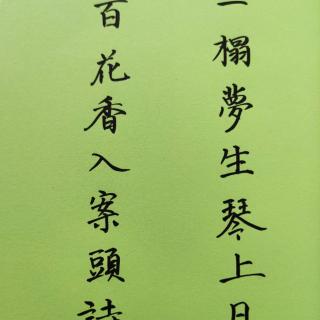 一榻夢生琴上月
百花香入案頭詩